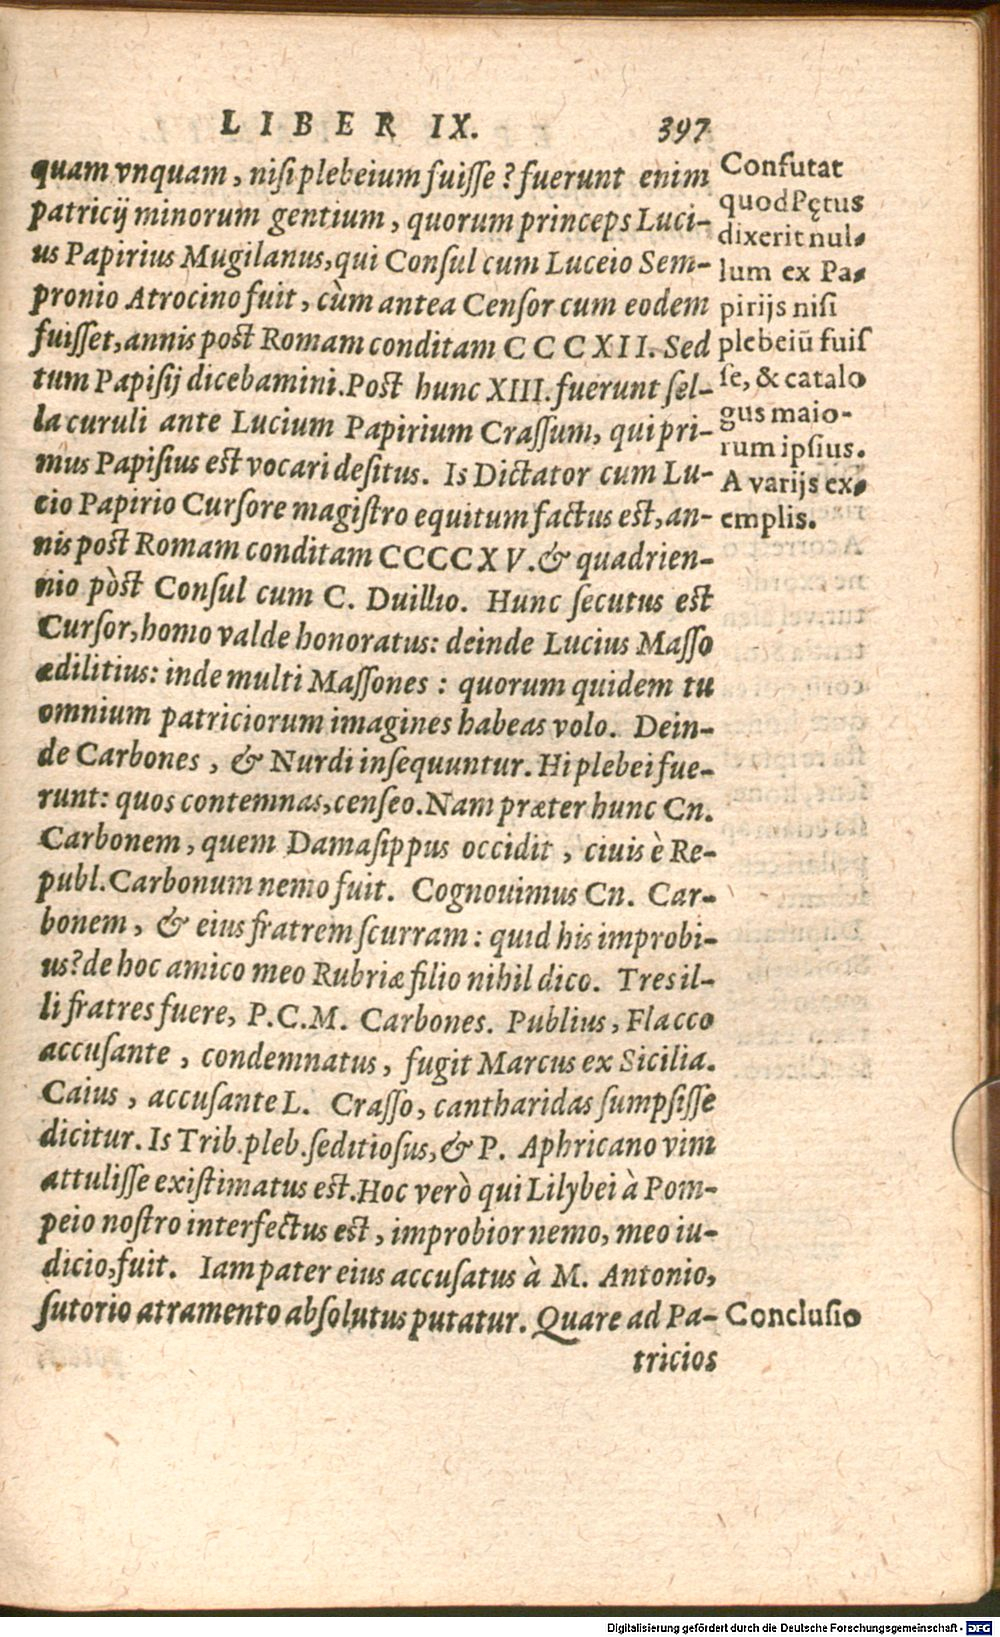 LIBER IX. 397
quam vnquam, nisi plebeium fuisse? fuerunt enim
patricij minorum gentium, quorum princeps Luci-
us Papirius Mugilanus, qui Consul cum Luceio Sem-
pronio Atrocino fuit, cùm antea Censor cum eodem
fuisset, annis post Romam conditam CCCXII. Sed
tum Papisij dicebamini. Post hunc XIII. fuerunt sel-
la curuli ante Lucium Papirium Crassum, qui pri-
mus Papisius est vocari desitus. Is Dictator cum Lu-
cio Papirio Cursore magistro equitum factus est, an-
nis post Romam conditam CCCCXV. & quadrien-
nio pòst Consul cum C. Duillio. Hunc secutus est
Cursor, homo valde honoratus: deinde Lucius Masso
ædilitius: inde multi Massones: quorum quidem tu
omnium patriciorum imagines habeas volo. Dein-
de Carbones, & Nurdi insequuntur. Hi plebei fue-
runt: quos contemnas, censeo. Nam præter hunc Cn.
Carbonem, quem Damasippus occidit, ciuis è Re-
publ. Carbonum nemo fuit. Cognouimus Cn. Car-
bonem, & eius fratrem scurram: quid his improbi-
us? de hoc amico meo Rubriæ filio nihil dico. Tres il-
li fratres fuere, P.C.M. Carbones. Publius, Flacco
accusante, condemnatus, fugit Marcus ex Sicilia.
Caius, accusante L. Crasso, cantharidas sumpsisse
dicitur. Is Trib. pleb. seditiosus, & P. Aphricano vim
attulisse existimatus est. Hoc verò qui Lilybei à Pom-
peio nostro interfectus est, improbior nemo, meo iu-
dicio, fuit. Iam pater eius accusatus à M. Antonio,
sutorio atramento absolutus putatur. Quare ad Pa-
tricios
Confutat
quod Pętus
dixerit nul-
lum ex Pa-
pirijs nisi
plebeiũ fuis
se, & catalo
gus maio-
rum ipsius.
A varijs ex-
emplis.
Conclusio
Digitalisierung gefördert durch die Deutsche Forschungsgemeinschaft - DFG